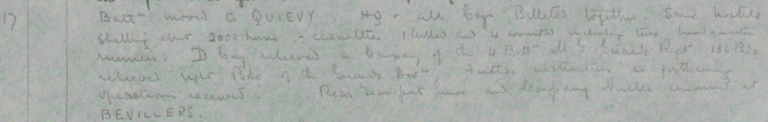 17 Battn moved to QUIEVY. HQ & all Coys Billeted together. Some hostile
shelling about 2000 hours - casualties 1 killed and 4 wounded including two headquarter
runners. D Coy relieved a Company of the 4 Battn Guards Regt. 186 Bde
relieved right Bde of the Guards Divn. Further instructions re forthcoming
operations received. Rear Transport lines and Company Nucleus remained at
BEVILLERS.